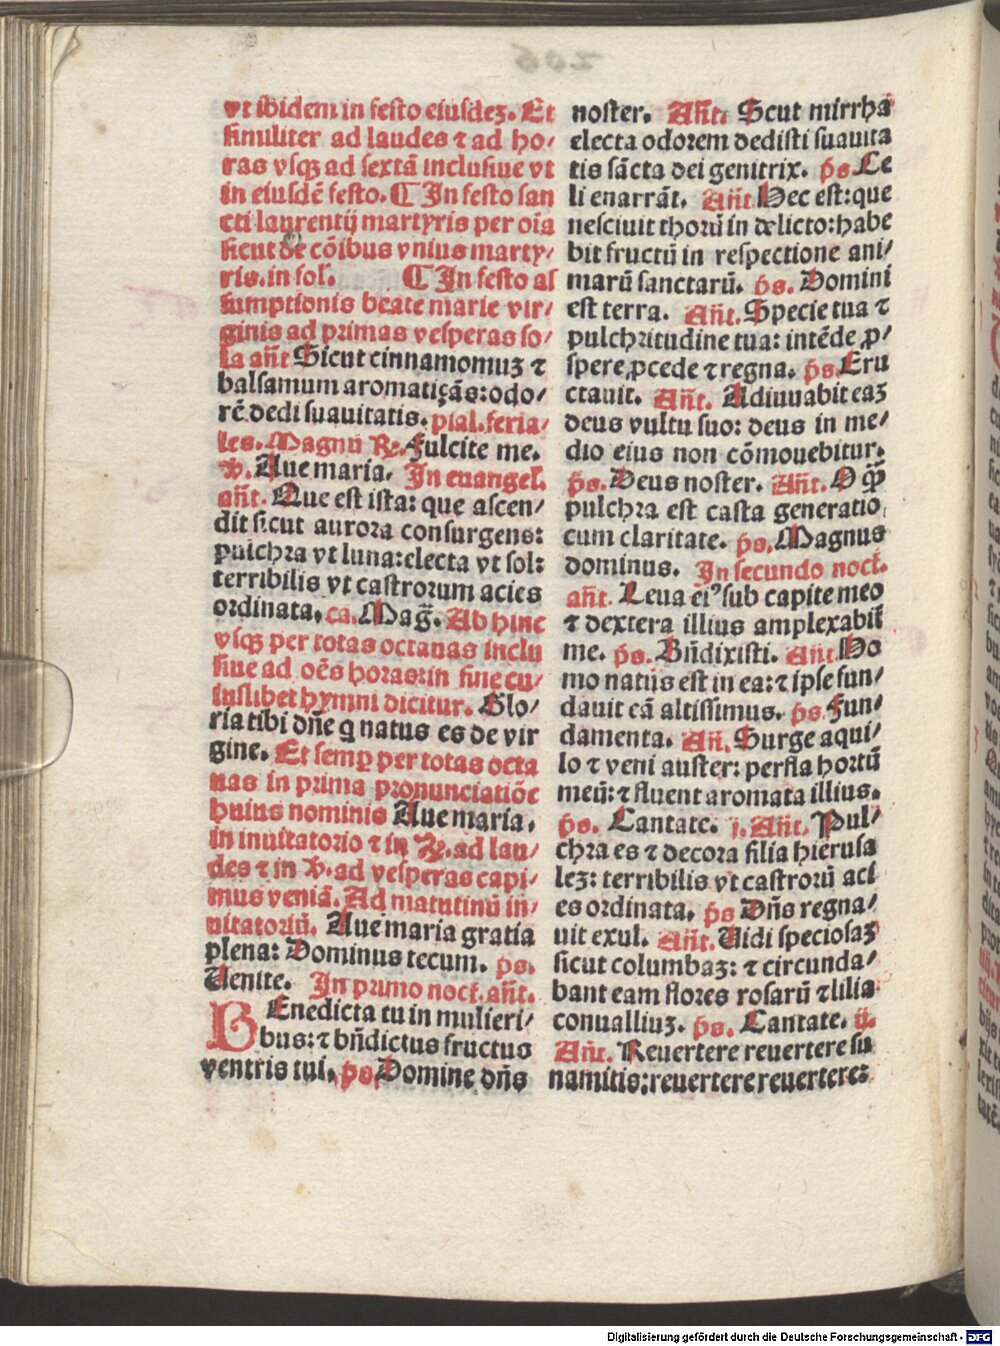 vt ibidem in festo eiusdeꝫ. Et
similiter ad laudes ⁊ ad ho/
ras vsqꝫ ad sextā inclusiue vt
in eiusdē festo. ¶ In festo san
cti laurentij martyris per oīa
sicut de cōibus vnius marty/
ris. in sol. ¶ In festo as
sumptionis beate marie vir/
ginis ad primas vesperas so/
la añt Sicut cinnamomuꝫ ⁊
balsamum aromatiçãs: odo/
rē dedi suauitatis. psal. feria/
les. Magnū ℟. Fulcite me.
℣. Aue maria. In euangel.
añt. Que est ista: que ascen/
dit sicut aurora consurgens:
pulchra vt luna: electa vt sol:
terribilis vt castrorum acies
ordinata. ca. Mag̃. Ab hinc
vsqꝫ per totas octauas inclu
siue ad oēs horas: in fine cu/
iuslibet hymni dicitur. Glo/
ria tibi dñe q natus es de vir
gine. Et semꝑ per totas octa
uas in prima pronunciatiōe
huius nominis Aue maria.
in inuitatorio ⁊ in ℟. ad lau/
des ⁊ in ℣. ad vesperas capi/
mus veniā. Ad matutinū in/
uitatoriū. Aue maria gratia
plena: Dominus tecum. ps.
Venite. In primo noct. añt.
BEnedicta tu in mulieri/
bus: ⁊ bñdictus fructus
ventris tui. ps. Domine dñs
noster. Añt. Sicut mirrha
electa odorem dedisti suauita
tis sācta dei genitrix. ps Ce
li enarrāt. Añt Hec est: que
nesciuit thorū in delicto: habe
bit fructū in respectione ani/
marū sanctarū. ps. Domini
est terra. Añt. Specie tua ⁊
pulchritudine tua: intēde ꝓ/
spere ꝓcede ⁊ regna. ps. Eru
ctauit. Añt. Adiuuabit eaꝫ
deus vultu suo: deus in me/
dio eius non cōmouebitur.
ps. Deus noster. Añt. O q̃ꝫ
pulchra est casta generatio
cum claritate. ps. Magnus
dominus. In secundo noct.
añt. Leua eiꝰ sub capite meo
⁊ dextera illius amplexabit̃
me. ps. Bñdixisti. Añt Ho
mo natus est in ea: ⁊ ipse fun/
dauit eā altissimus. ps. Fun/
damenta. Añ. Surge aqui/
lo ⁊ veni auster: perfla hortū
meū: ⁊ fluent aromata illius.
ps. Cantate. j. Añt. Pul/
chra es ⁊ decora filia hierusa
leꝫ: terribilis vt castrorū aci
es ordinata. ps Dñs regna/
uit exul. Añt. Vidi speciosaꝫ
sicut columbaꝫ: ⁊ circunda/
bant eam flores rosarū ⁊ lilia
conualliuꝫ. ps. Cantate. ij.
Añt. Reuertere reuertere su
namitis: reuertere reuertere:
Digitalisierung gefördert durch die Deutsche Forschungsgemeinschaft - DFG